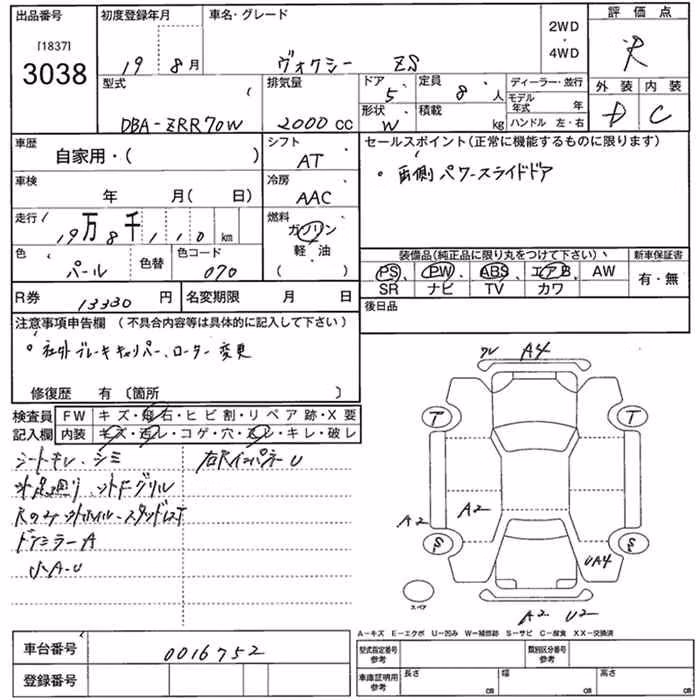 出品番号 初度登録年月 車名・グレード 2WD・4WD 評価点
[1837]
3038 19 8月 ヴォクシー ZS R
型式 排気量 ドア 定員 ディーラー・並行 外装 内装
5 8人 モデル年式 年
DBA-ZRR70W 2000cc 形状 W 積載 kg ハンドル 左・右 D C
車歴 シフト セールスポイント(正常に機能するものに限ります)
自家用・( ) AT 。両側パワースライドドア
車検 冷房
年 月(日) AAC
走行 燃料
19万8千110km ガソリン
色 色替 色コード 軽・油 装備品(純正品に限り丸をつけて下さい) 新車保証書
パール 070 ( ) PS PW ABS エアB AW 有・無
SR ナビ TV カワ
R券 13330円 名変期限 月 日 後日品
注意事項申告欄 (不具合内容等は具体的に記入して下さい)
。社外ブレーキキャリパー、ローター変更
修復歴 有〔箇所 〕
検査員 FW キズ・飛石・ヒビ割・リペア跡・X要
記入欄 内装 キズ・汚レ・コゲ・穴・スレ・キレ・破レ
シートキレ・シミ 右Rインパネ-U
外足廻り、外Fグリル
ドアミラーA
小A-U
A4
T T
A2 A2
S S
UA4
スペア
A2 U2
A-キズ E-エクボ U-凹み W-補修跡 S-サビ C-腐食 XX-交換済
車台番号 0016752 型式指定番号 参考 類別区分番号 参考
登録番号 車庫証明用 参考 長さ cm 幅 cm 高さ cm